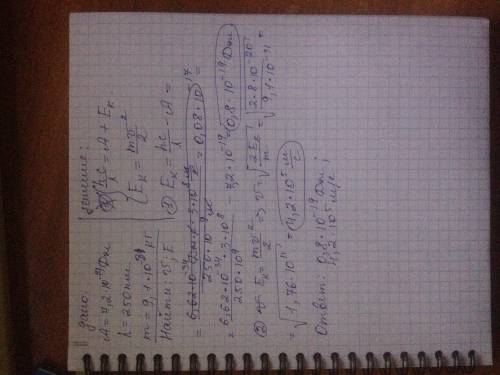 Дано:
A = 7,2·10⁻¹⁹ Дж
λ = 250 нм
m = 9,1·10⁻³¹ кг
Найти: v; E
Решение:
hc/λ = A + Eₖ
Eₖ = mv²/2
① Eₖ = hc/λ - A =
= 6,62·10⁻³⁴ · 3·10⁸ / 250·10⁻⁹ = 0,08·10¹⁷
= 6,62·10⁻³⁴·3·10⁸ / 250·10⁹ - 7,2·10⁻¹⁹ = 0,8·10⁻¹⁹ Дж
② Eₖ = mv²/2 => v = √(2Eₖ/m) = √(2·8·10⁻²⁰ / 9,1·10⁻³¹) =
= √(1,76·10¹¹) = 4,2·10⁵ м/с
Ответ: 0,8·10⁻¹⁹ Дж;
4,2·10⁵ м/с